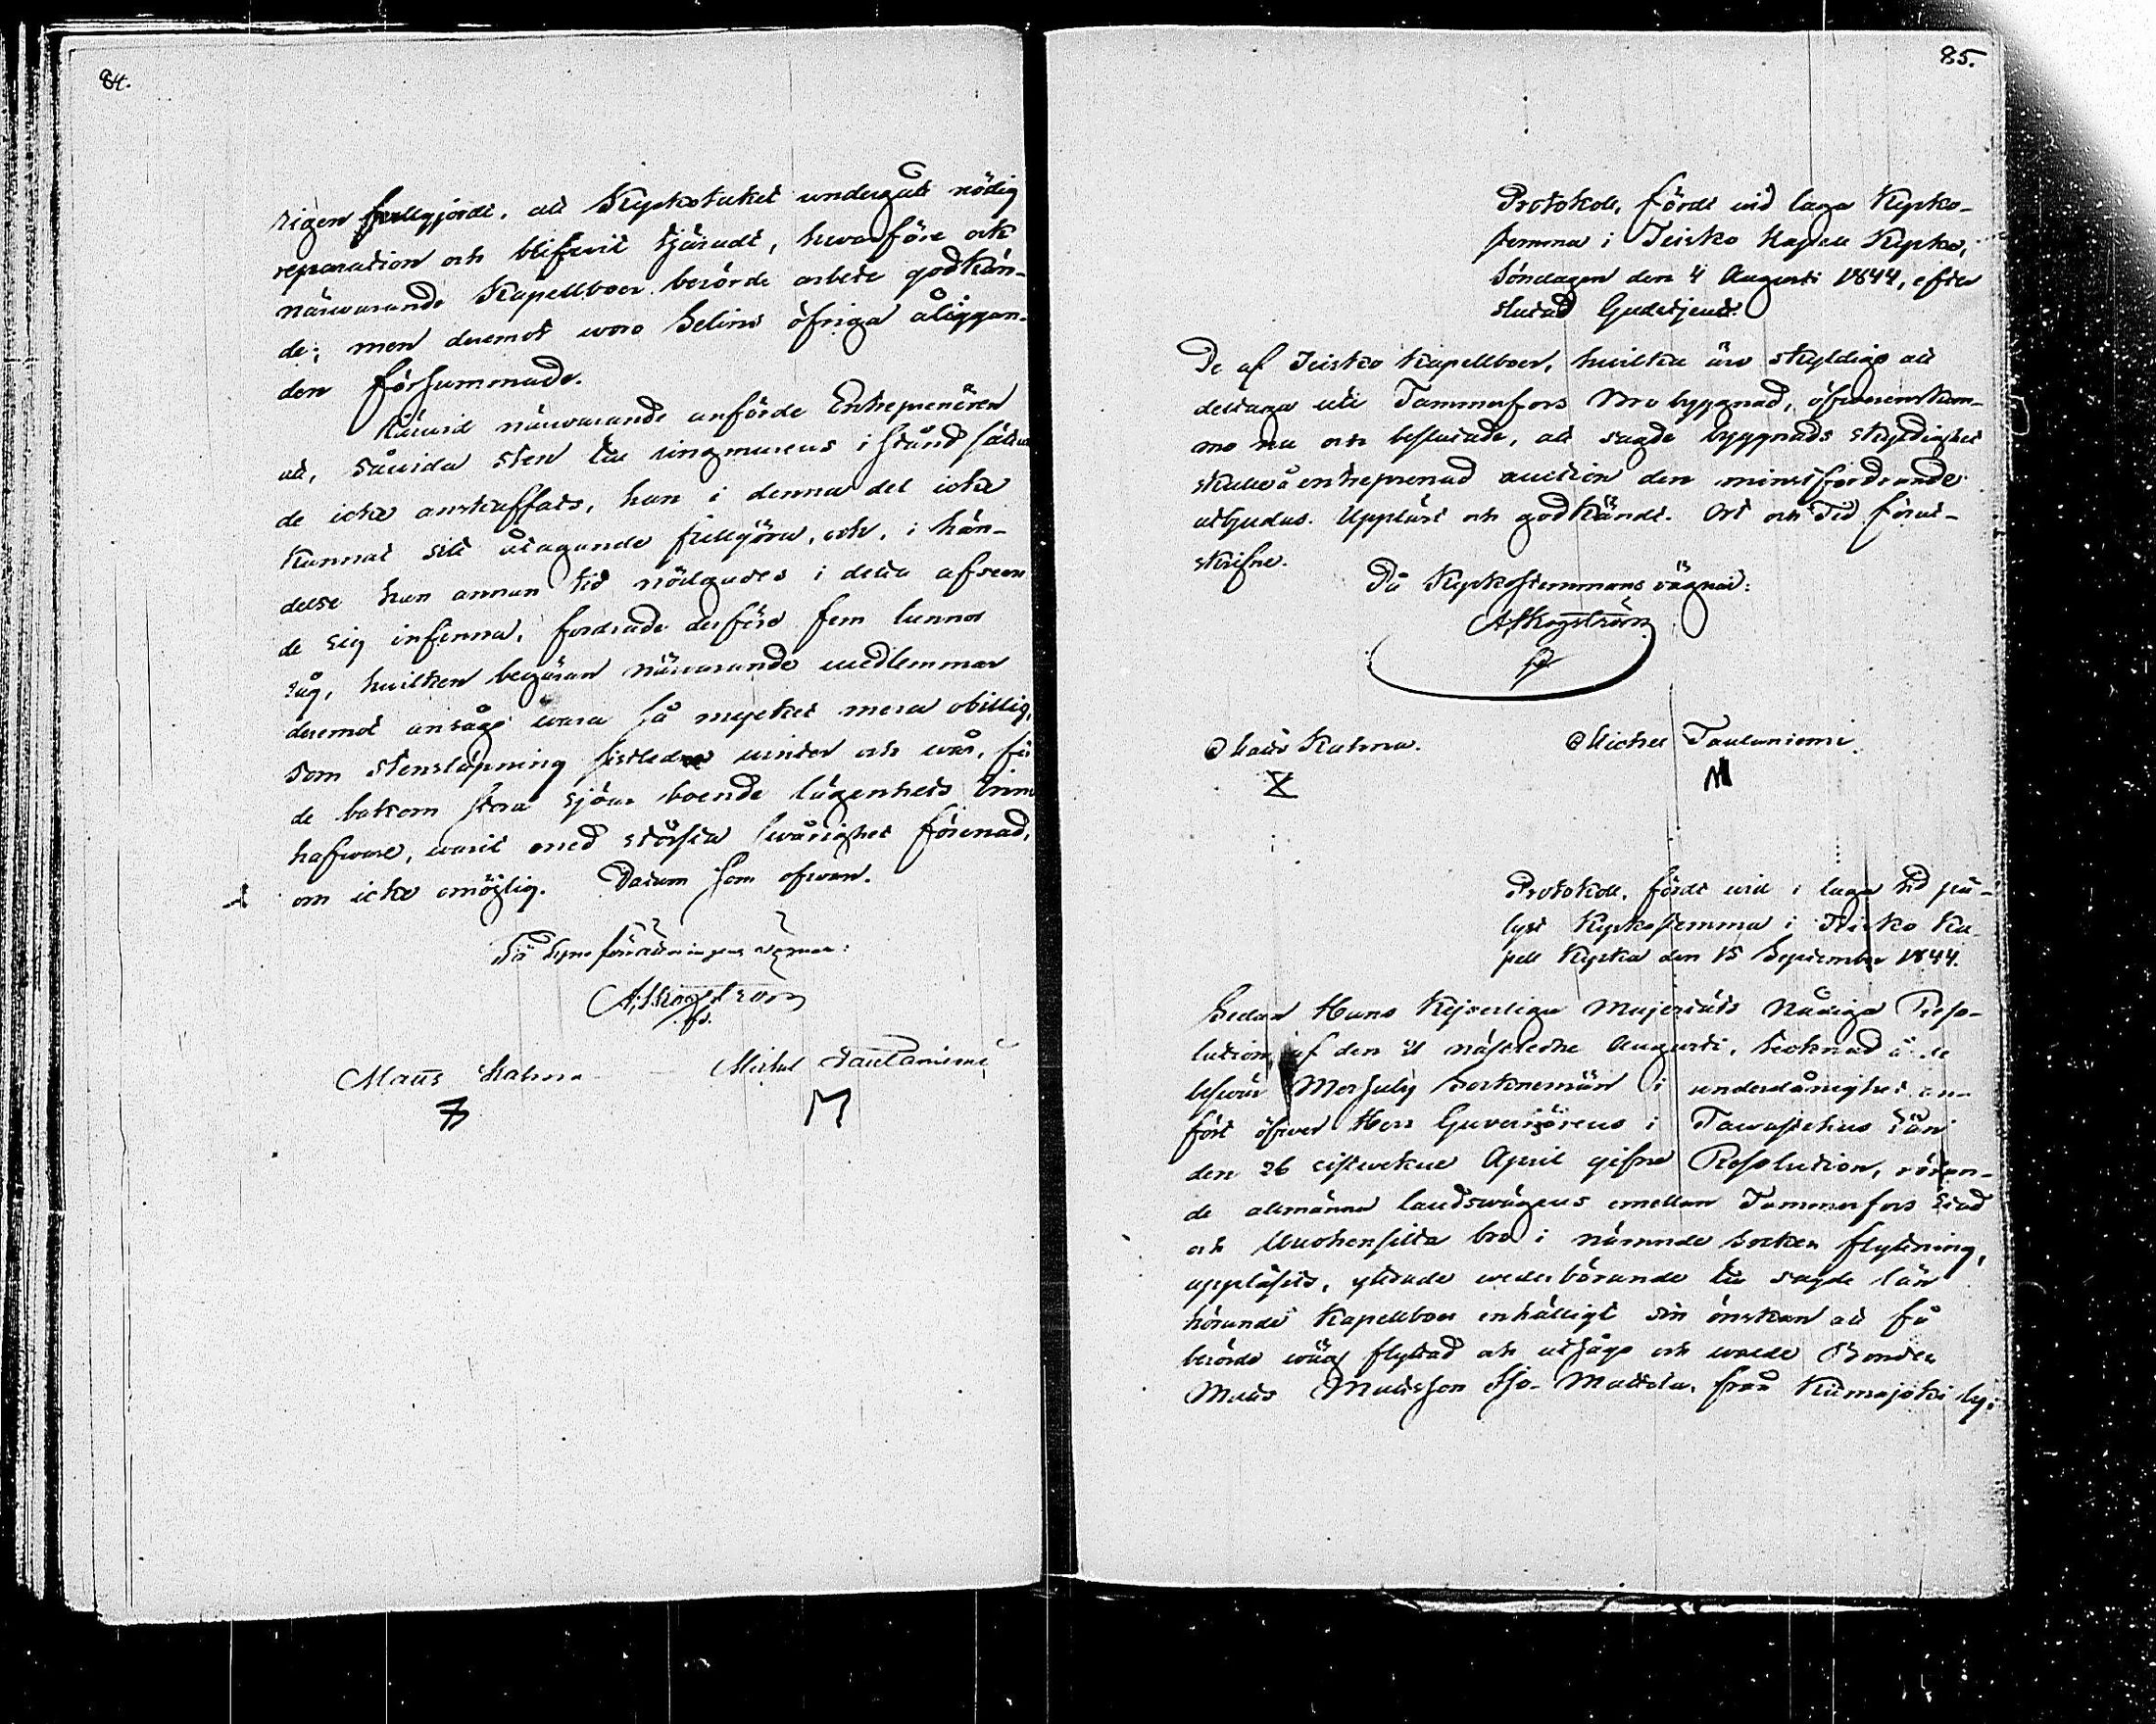 84.
rigen fullgjordt, att Kyrkotaket undergått nödig
reparation och blifwit tjäradt, hwarföre ock
närwarande Kapellboer berörde arbete godkän-
de; men deremot woro Selins öfriga åliggan-
den försummade.
Härwid närwarande anförde Entreprenören
att, såwida sten till ringmurens i stånd sättan-
de icke anskaffats, han i denna del icke
kunnat sitt åtagande fullgöra, och, i hän-
delse han annan tid nödgades i detta afseen-
de sig infinna, fordrade derföre fem tunnor
råg, hwilken begäran närwarande medlemmar
deremot ansågo wara så mycket mera obillig,
som stensläpning sistledne winter och wår, för
de bakom stora sjöar boende lägenhets inne
hafware, warit med största swårighet förenad,
om icke omöjlig. Datum som ofwan.
På Syneförrättningens wägnar:
A. Skogström
Matts Kahma Michel Tautaniemi
M
85.
Protokoll, fördt wid laga Kyrko-
stemma i Teisko Kapell Kyrka,
Söndagen den 4 Augusti 1844, efter
slutad Gudstjenst.
De af Teisko Kapellboer, hwilka äro skyldige att
deltaga uti Tammerfors Bro byggnad, öfwerenskom-
mo nu och beslutade, att sagde byggnads skyldighet
skulle å entreprenad auction den minstfordrande
utbjudas. Uppläst och godkändt. Ort och Tid förut-
skrifne.
På Kyrkostemmans wägnar:
A. Skogström
Matts Kahma. Michel Tautaniemi.
X M
Protokoll, fördt wid i laga tid på-
lyst Kyrkostemma i Teisko Ka-
pell Kyrka den 15 September 1844.
Sedan Hans Kejserliga Majestäts Nådiga Reso-
lution, af den 21 nästledne Augusti, tecknad å de
beswär Messuby Socknemän i underdånighet an-
fört öfwer Herr Guvernörens i Tawastehus Län
den 26 sistwekne April gifne Resolution, röran-
de allmänna landswägens emellan Tammerfors Stad
och Wuohensilta bro i nämnde socken flyttning,
uppläsits, yttrade wederbörande till sagde län
hörande Kapellboer enhälligt sin önskan att få
berörde wäg flyttad och utsågo och walde Bonden
Matts Mattsson Iso-Mattila, från Kiimajoki by